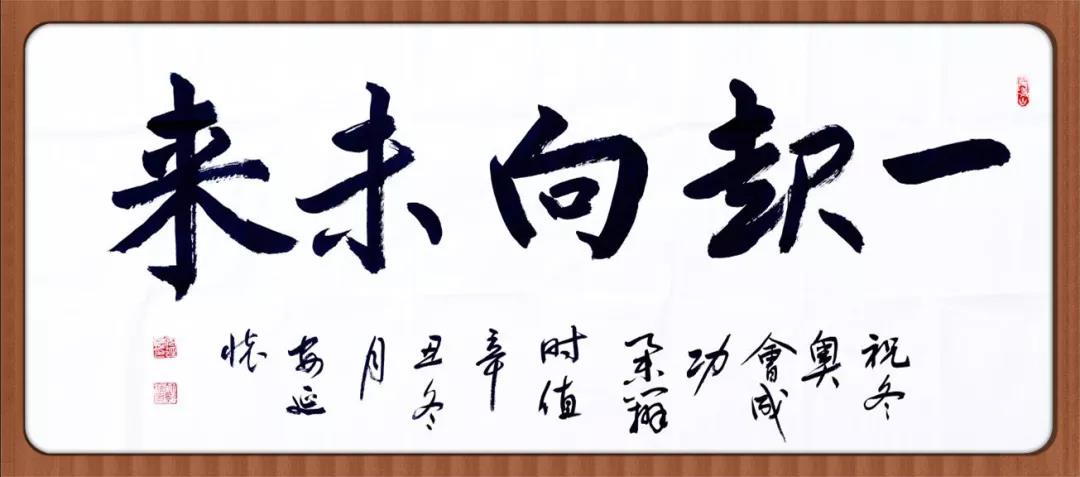 一起向未来
祝冬
奥
會成
功
举辦
时值
辛
丑冬
月
延